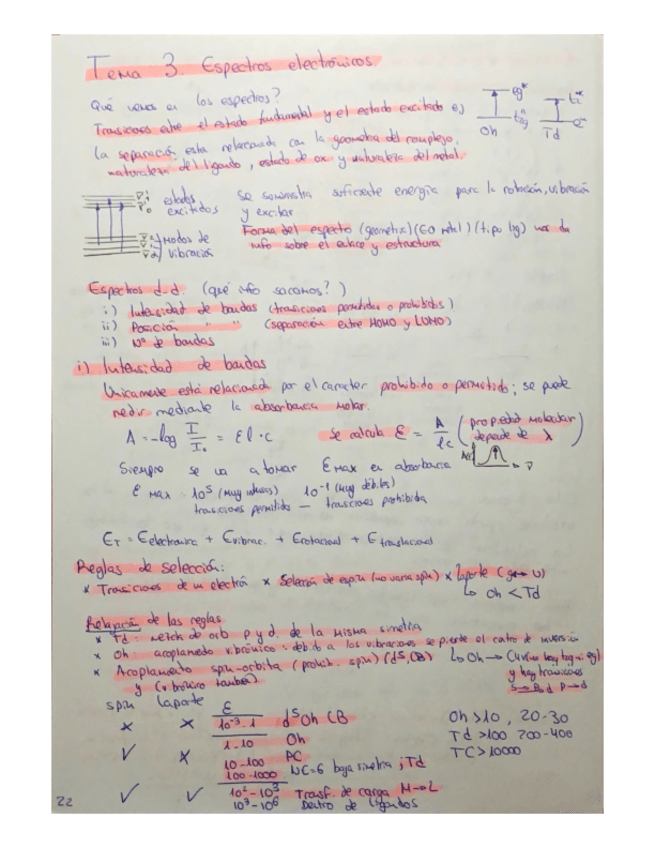 Tema 3. Espectros electrónicos
Qué vemos en los espectros?
Transiciones entre el estado fundamental y el estado excitado ej
eg*
t2g
Oh
t2*
e
Td
la separación está relacionada con la geometria del complejo,
naturaleza del ligando, estado de ox y naturaleza del metal.
estados
excitados
modos de
vibración
Se suministra suficiente energía para la rotación, vibración
y excitar
Forma del espectro (geometria) (EO metal) (tipo lig) nos da
info sobre el enlace y estructura
Espectros d-d. (qué info sacamos?)
i) Intensidad de bandas (transiciones permitidas o prohibidas)
ii) Posición " " (separación entre HOMO y LUMO)
iii) Nº de bandas
i) Intensidad de bandas
Únicamente está relacionada por el caracter prohibido o permitido; se puede
medir mediante la absorbancia molar.
A = -log I/I₀ = εl·c
Se calcula ε = A/lc (propiedad molecular
depende de λ)
Siempre se va a tomar εmax en absorbancia
ε max = 10⁵ (muy intensas) 10⁻¹ (muy débiles)
transiciones permitidas — transiciones prohibida
ET = Eelectronica + Evibrac. + Erotacional + Etraslacional
Reglas de selección:
* Transiciones de un electrón * Selección de espin (no varia spin) * Laporte (g↔u)
↳ Oh < Td
Relajación de las reglas
* Td: mezcla de orb p y d, de la misma simetria
* Oh: acoplamiento vibrónico: debido a los vibraciones se pierde el centro de inversión
* Acoplamiento spin-orbita (prohib. spin) (d5, CB)
y (vibrónico tambien).
↳ Oh →
y hay transiciones
spin Laporte ε
× × 10⁻³-1 d⁵ Oh CB
✓ × 1-10 Oh
10-100 PC
100-1000 NC=6 baja simetria, Td
✓ ✓ 10²-10³ Transf. de carga M→L
10³-10⁶ Dentro de ligandos
Oh > 10, 20-30
Td > 100 200-400
TC > 10000
22